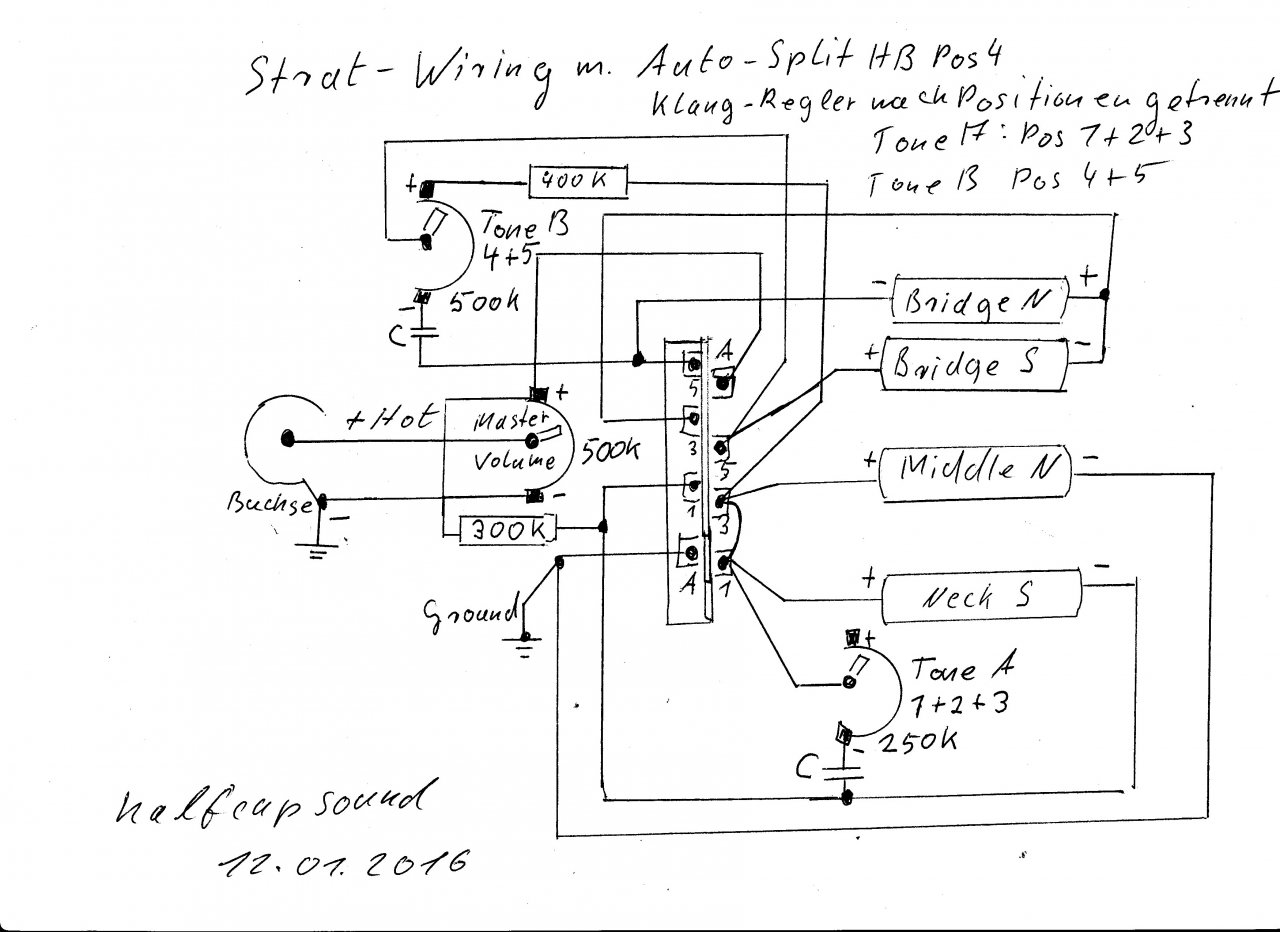 Strat-Wiring m. Auto-Split HB Pos4
Klang-Regler nach Positionen getrennt
Tone A: Pos 1+2+3
Tone B Pos 4+5
+
400K
Tone B
4+5
-
500K
C
- Bridge N +
+ Bridge S -
+ Middle N -
+ Neck S -
A
5
3
5
1
3
A
1
+ Hot
+
Master
Volume
500K
-
Buchse
-
300K
Ground
+
Tone A
1+2+3
250K
-
C
halfcapsound
12.01.2016